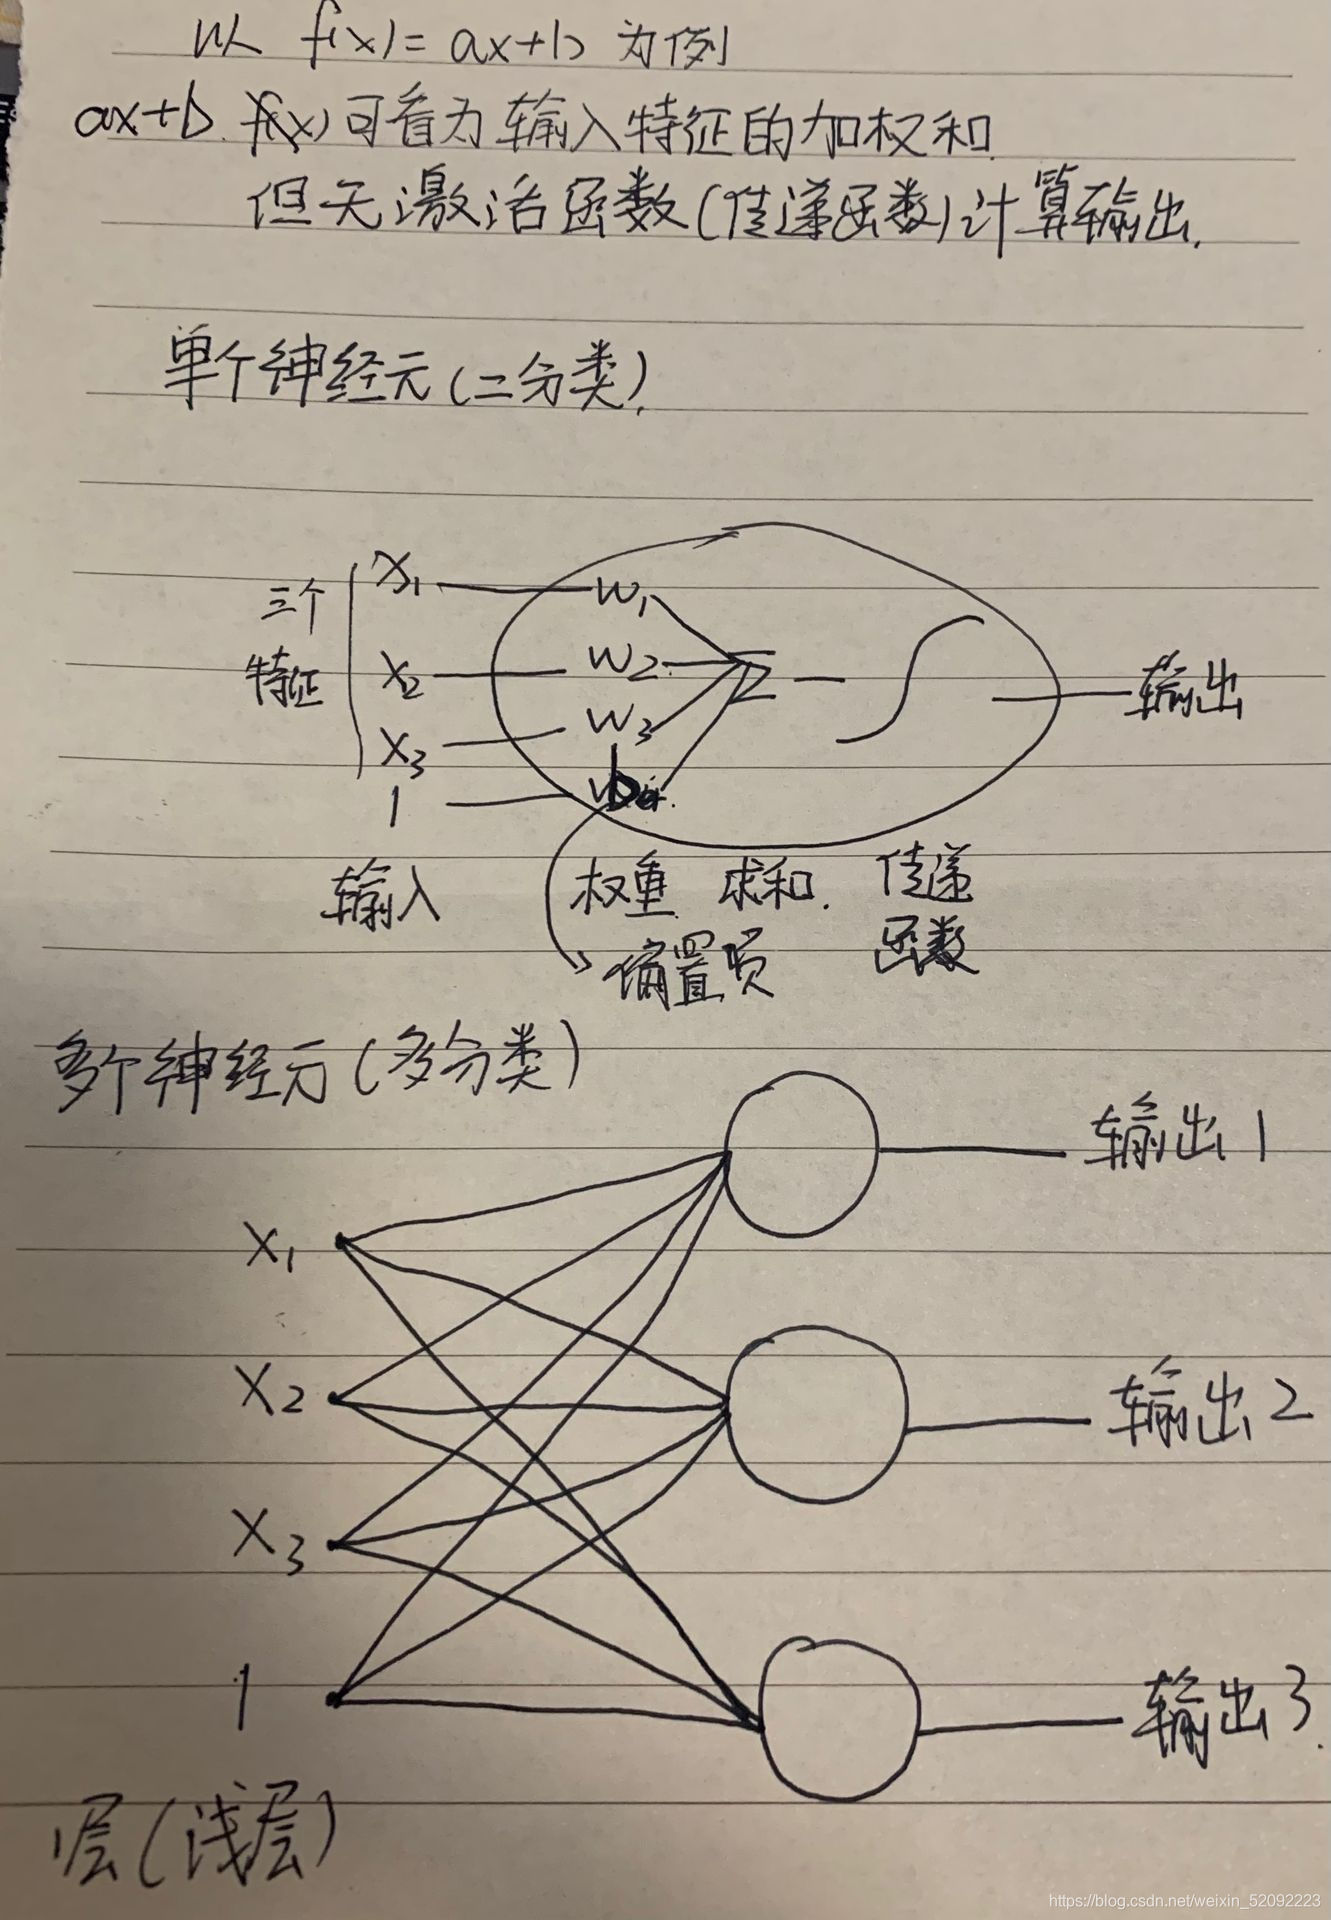 以 f(x)=ax+b 为例
ax+b f(x)可看为输入特征的加权和
但无激活函数(传递函数)计算输出.
单个神经元(二分类).
三个
特征
x1
w1
x2
w2
Σ
输出
x3
w3
1
b
输入
权重 求和. 传递
函数
偏置项
多个神经元(多分类)
输出1
x1
x2
输出2
x3
1
输出3.
1层(浅层)
https://blog.csdn.net/weixin_52092223